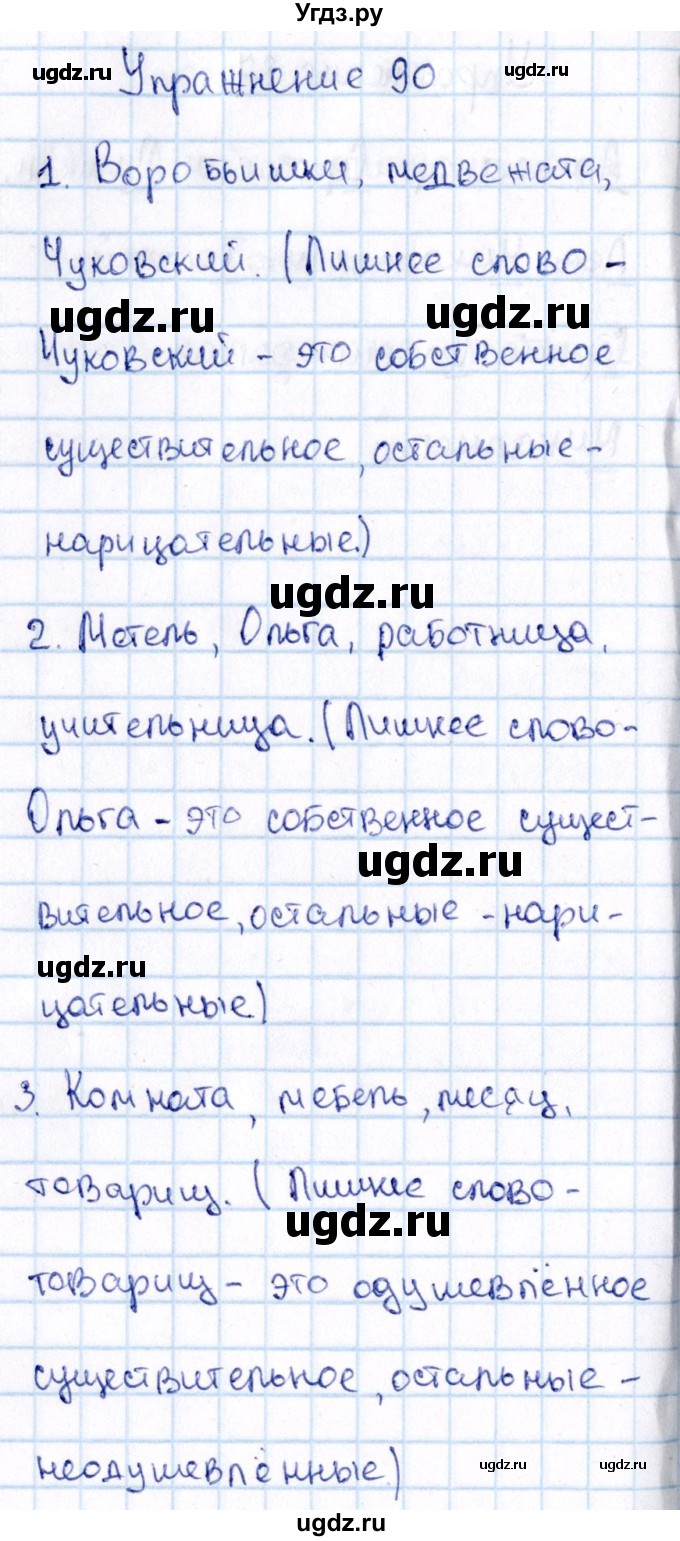 Угдз.ру
ugdz.ru Упражнение 90 ugdz.ru
1. Воробьишки, медвежата,
Чуковский. (Лишнее слово -
ugdz.ru ugdz.ru
Чуковский - это собственное
существительное, остальные -
нарицательные.)
ugdz.ru
2. Метель, Ольга, работница,
учительница. (Лишнее слово -
Ольга - это собственное сущест-
ugdz.ru
вительное, остальные - нари-
ugdz.ru
цательные)
3. Комната, мебель, месяц,
товарищ. (Лишнее слово -
ugdz.ru
товарищ - это одушевлённое
существительное, остальные -
неодушевлённые)
ugdz.ru ugdz.ru
ugdz.ru